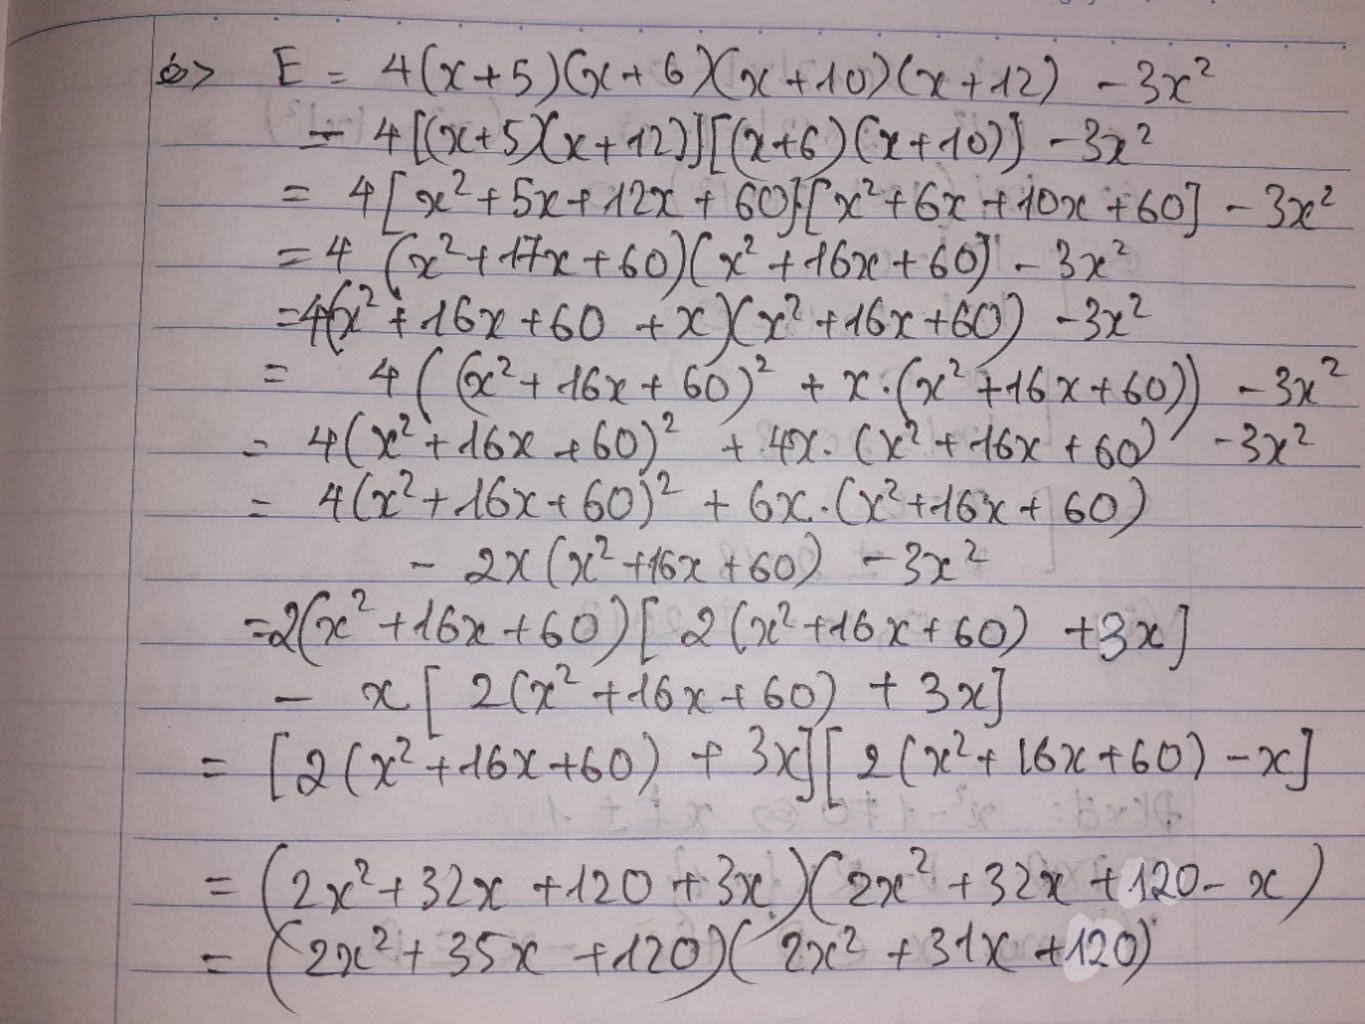 b> E = 4(x+5)(x+6)(x+10)(x+12) - 3x²
= 4[(x+5)(x+12)][(x+6)(x+10)] - 3x²
= 4[x²+5x+12x+60][x²+6x+10x+60] - 3x²
= 4 (x²+17x+60)(x²+16x+60) - 3x²
= 4(x²+16x+60+x)(x²+16x+60) - 3x²
= 4((x²+16x+60)² + x.(x²+16x+60)) - 3x²
= 4(x²+16x+60)² + 4x.(x²+16x+60) - 3x²
= 4(x²+16x+60)² + 6x.(x²+16x+60)
- 2x(x²+16x+60) - 3x²
= 2(x²+16x+60)[2(x²+16x+60) + 3x]
- x[2(x²+16x+60) + 3x]
= [2(x²+16x+60) + 3x][2(x²+16x+60) - x]
= (2x²+32x+120+3x)(2x²+32x+120-x)
= (2x²+35x+120)(2x²+31x+120)